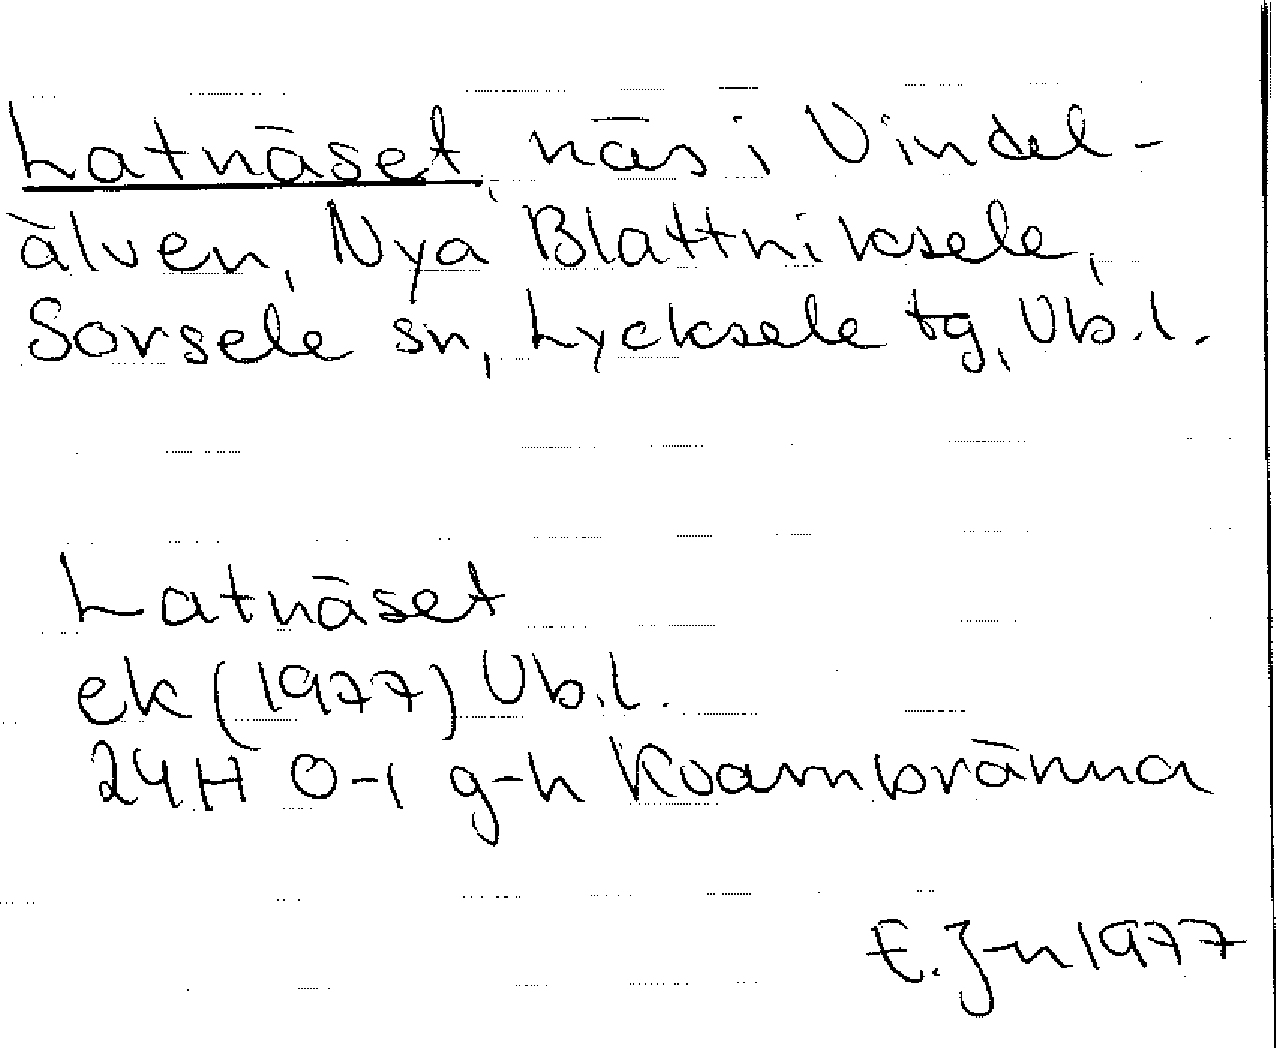 Latnäset, näs i Vindel-
älven, Nya Blattniksele,
Sorsele sn, Lycksele tg, Vb.l.
Latnäset
ek (1977) Vb.l.
24H 0-1 g-h Kvarnbränna
E. J-n 1977